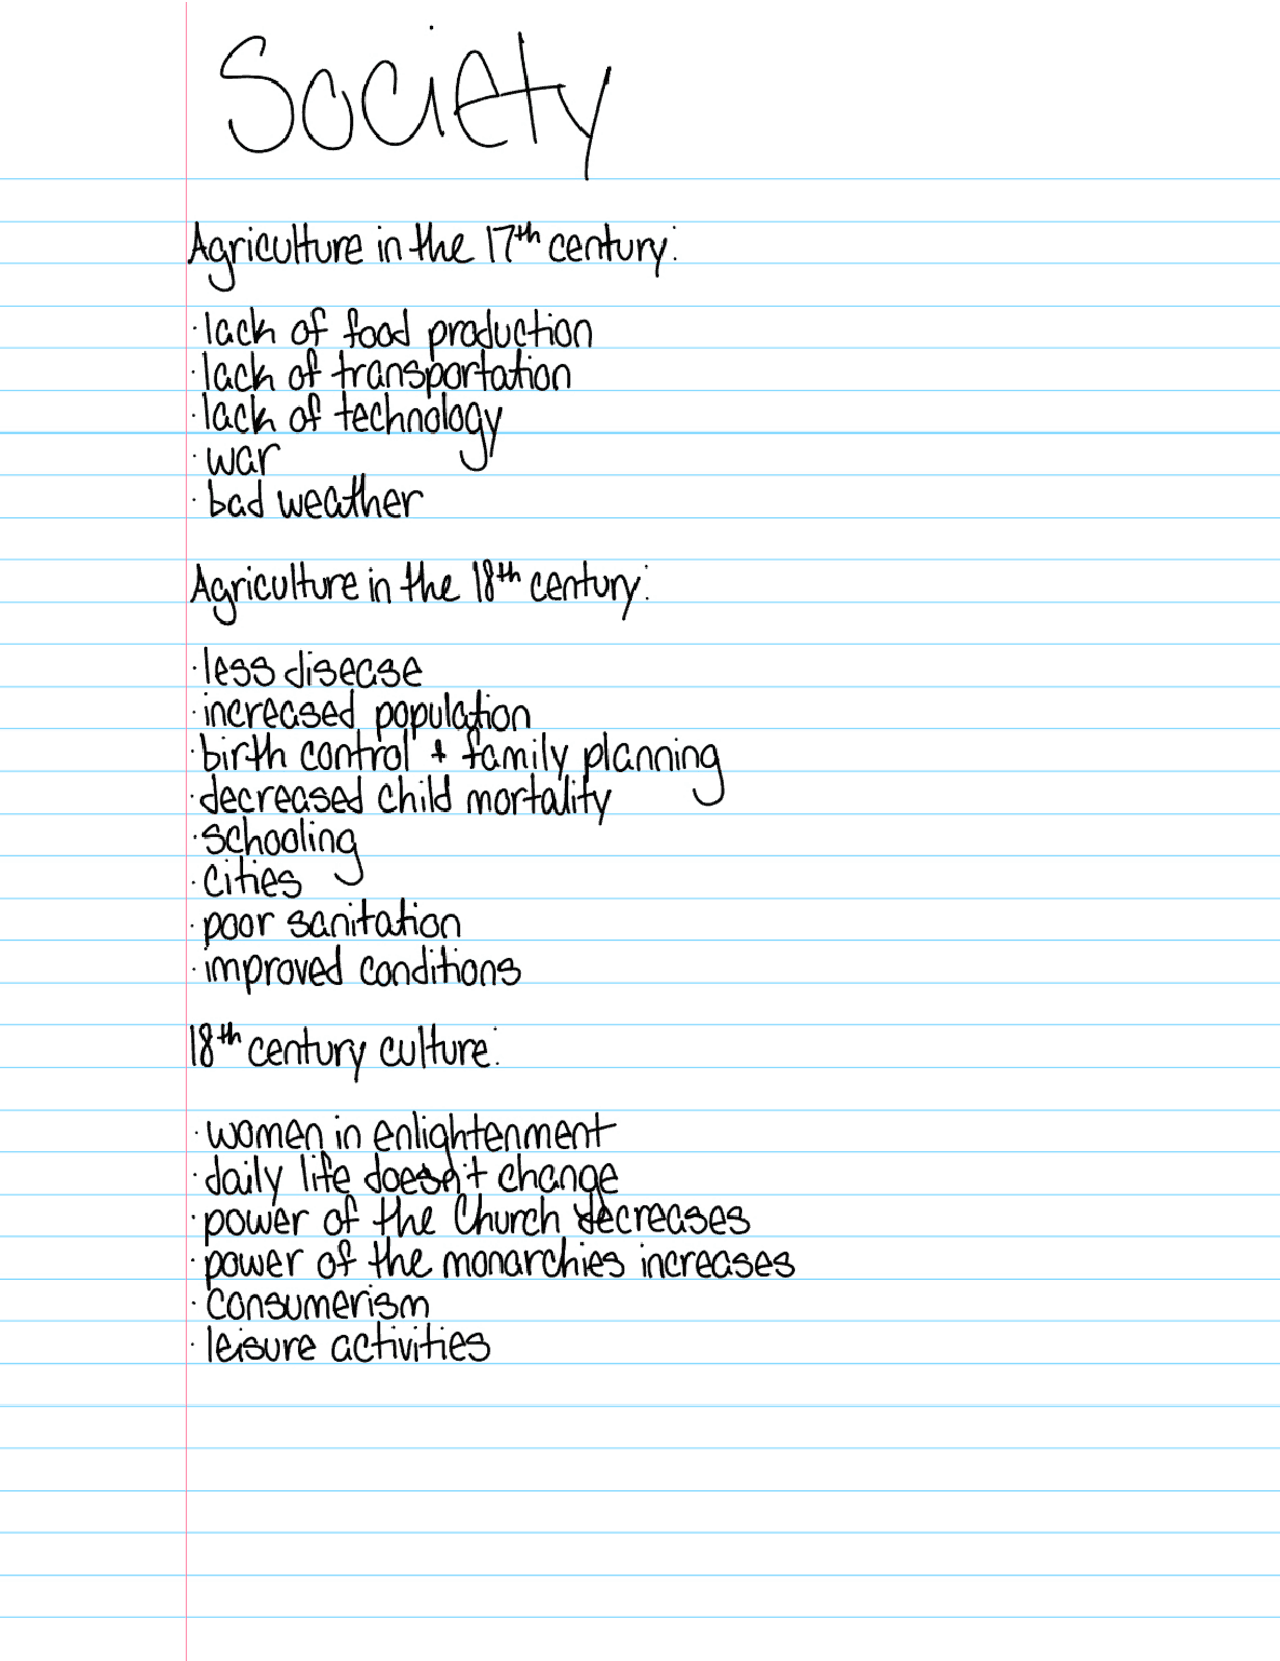 Society
Agriculture in the 17th century:
· lack of food production
· lack of transportation
· lack of technology
· war
· bad weather
Agriculture in the 18th century:
· less disease
· increased population
· birth control + family planning
· decreased child mortality
· schooling
· cities
· poor sanitation
· improved conditions
18th century culture:
· women in enlightenment
· daily life doesn't change
· power of the Church decreases
· power of the monarchies increases
· consumerism
· leisure activities